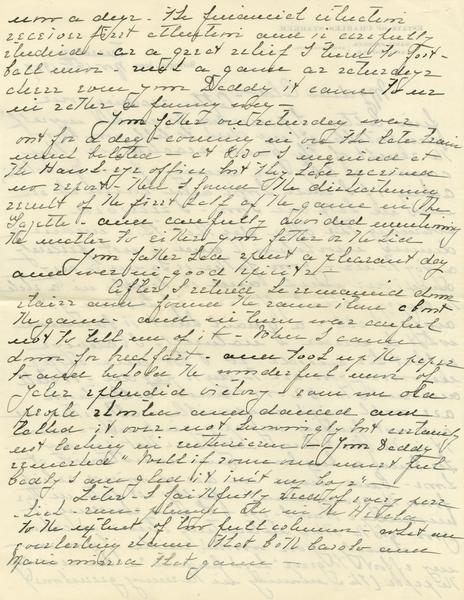 now a days. The financial situation
receives first attention and is carefully
studied - as a great relief I turn to Foot-
ball news - and a game as saturdays
cheer even your Daddy it came to us
in rather a funny way -
Your father on saturday was
out for a day - coming in on the late train
much belated - at 8:30 I inquired at
the Hawk-eye office but they had received
no report - then I found the disheartening
result of the first half of the game in the
Gazette - and carefully avoided mentioning
the matter to either your father or the
Your father had spent a pleasant day
and was in good spirits -
After I retired he remained down
stairs and found the same item about
the game - and in turn was careful
not to tell me of it When I came
down for breakfast - and took up the paper
lo and behold the wonderful news of
Yales splendid victory - even we old
people shouted and danced and
talked it over - not knowingly but certainly
not lacking in enthusiasm - Your Daddy
remarked "Well if some one must feel
badly I am glad it isn't my boys" -
Later I faithfully read of every pass
kick - run - plunge etc in the Herald
to the extent of four full columns and
everlasting shame that both Carolo and
Marie missed that game